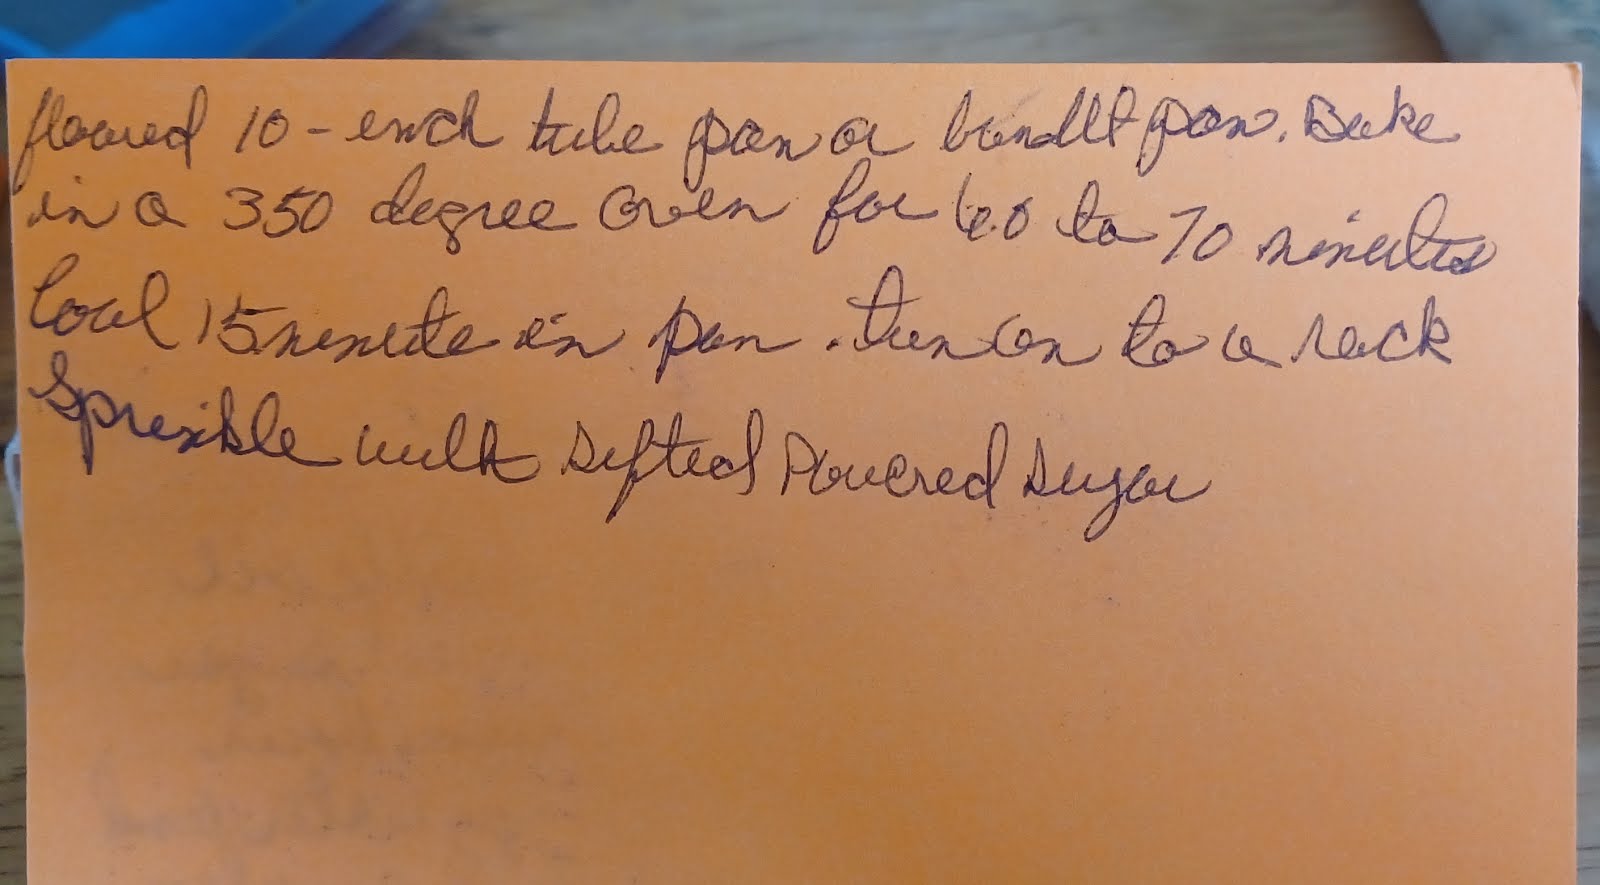 floured 10-inch tube pan or bundlt pan. Bake
in a 350 degree oven for 60 to 70 minutes
Cool 15 minute in pan. turn on to a rack
Sprinkle with sifted Powered sugar